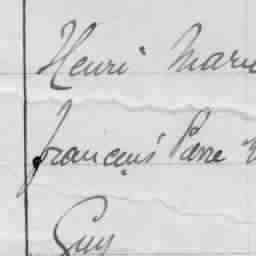 Henri Marie
François Pierre
Guy